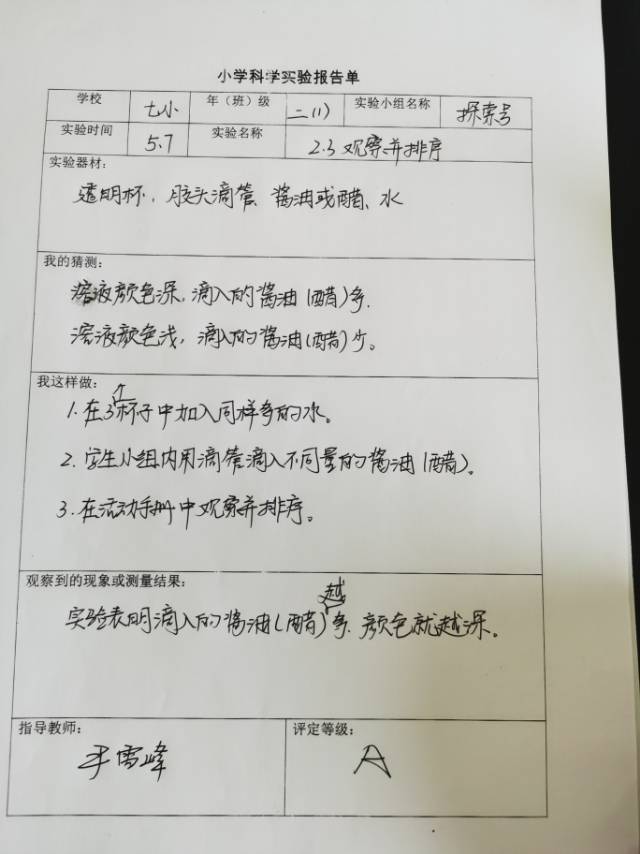 小学科学实验报告单
学校 七小 年（班）级 二(1) 实验小组名称 探索号
实验时间 5.7 实验名称 2.3 观察并排序
实验器材：
透明杯、胶头滴管、酱油或醋、水
我的猜测：
溶液颜色深，滴入的酱油(醋)多.
溶液颜色浅，滴入的酱油(醋)少。
我这样做：
1.在3个杯子中加入同样多的水。
2.学生小组内用滴管滴入不同量的酱油(醋)。
3.在活动手册中观察并排序。
观察到的现象或测量结果：
实验表明滴入的酱油(醋)越多.颜色就越深。
指导教师： 评定等级：
雪峰 A